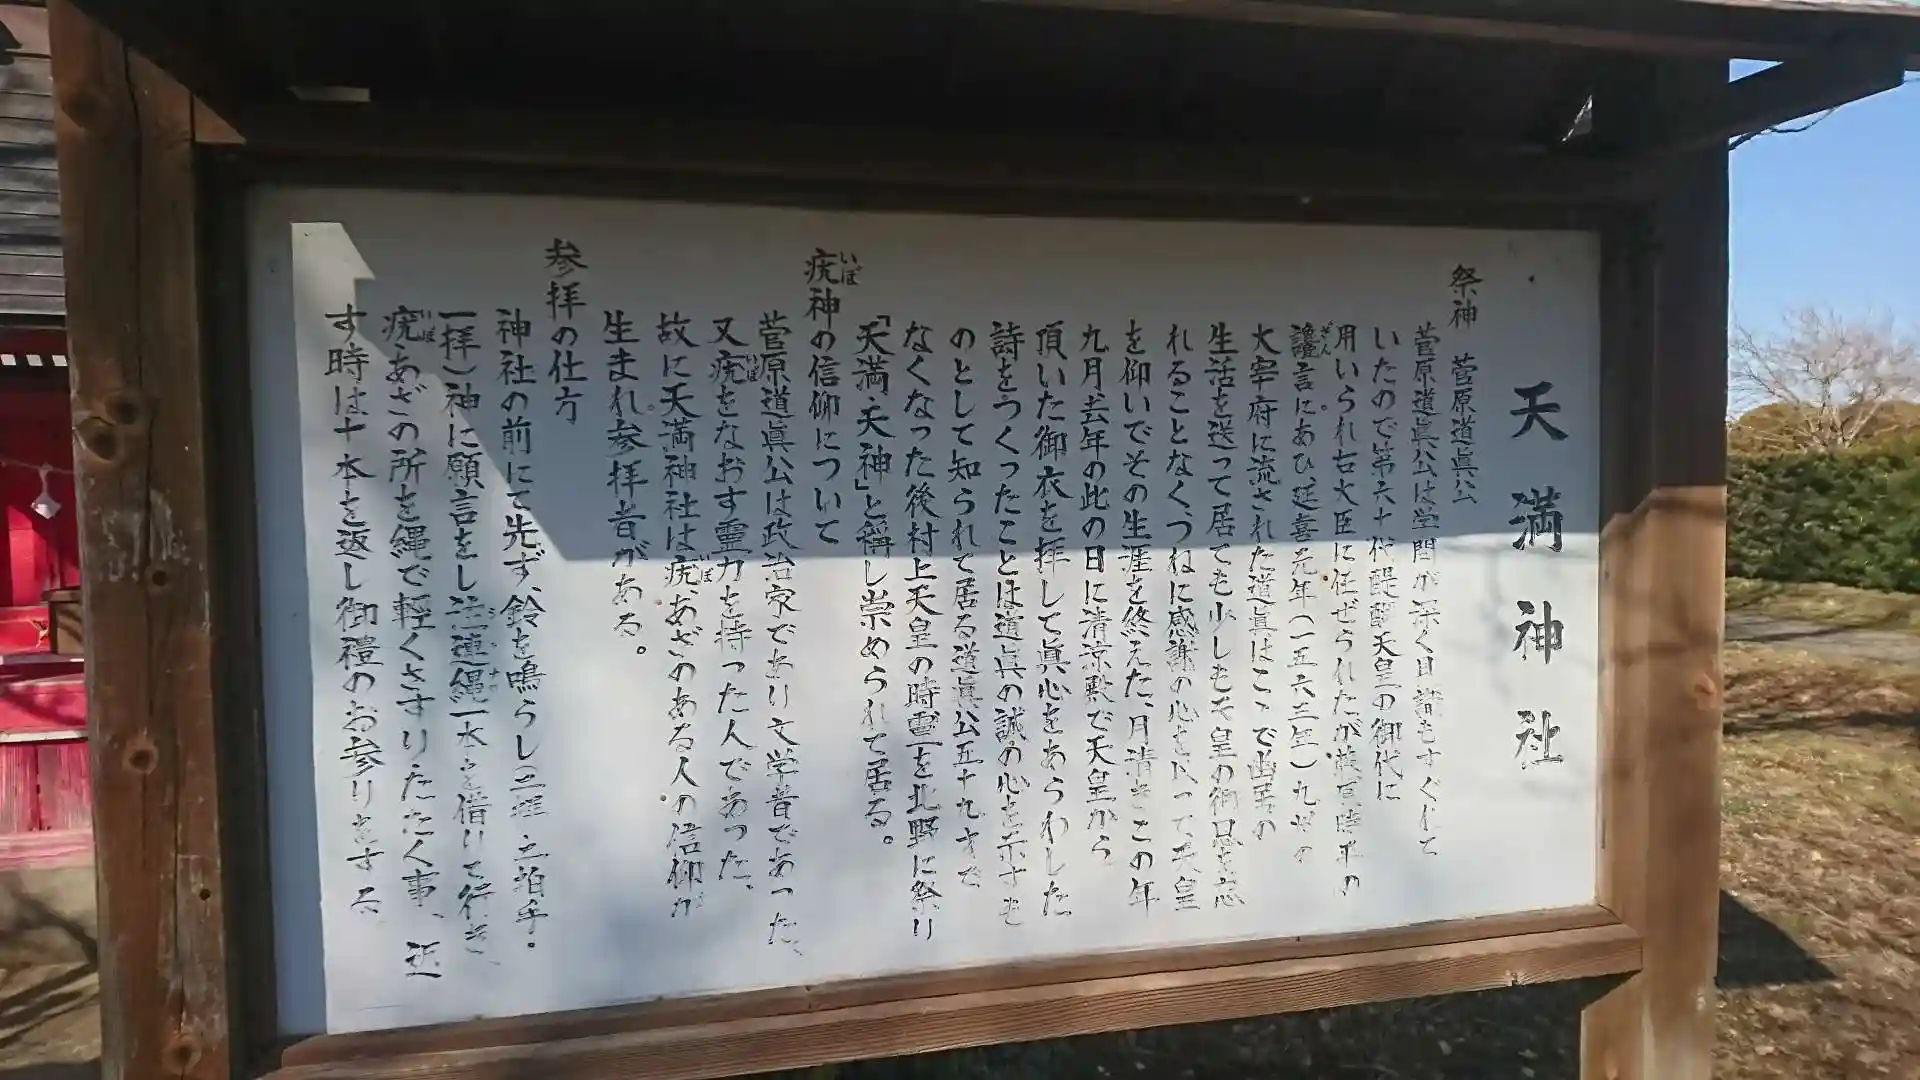 天満神社
祭神 菅原道眞公
菅原道眞公は学問が深く日諸もすぐれて
いたので第六十代醍醐天皇の御代に
用いられ右大臣に任ぜられたが藤原時平の
讒言にあひ延喜元年(一五六三年)九州の
大宰府に流された道眞はこゝで幽居の
生活を送って居ても少しも天皇の御恩を忘
れることなくつねに感謝の心をもって天皇
を仰いでその生涯を終えた、月清きこの年
九月去年の此の日に清涼殿で天皇から
頂いた御衣を拝して眞心をあらわした
詩をつくったことは道眞の誠の心を示すも
のとして知られて居る道眞公五十九才で
なくなった後村上天皇の時靈を北野に祭り
「天満天神」と稱し崇められて居る。
疣神の信仰について
菅原道眞公は政治家であり文学者であった、
又疣をなおす靈力を持った人であった、
故に天満神社は疣、あざのある人の信仰が
生まれ参拝者がある。
参拝の仕方
神社の前にて先ず、鈴を鳴らし(二拝二拍手・
一拝)神に願言をし注連縄一本を借りて行き、
疣あざの所を縄で軽くさすりたたく事、返
す時は十本を返し御禮のお参りをする